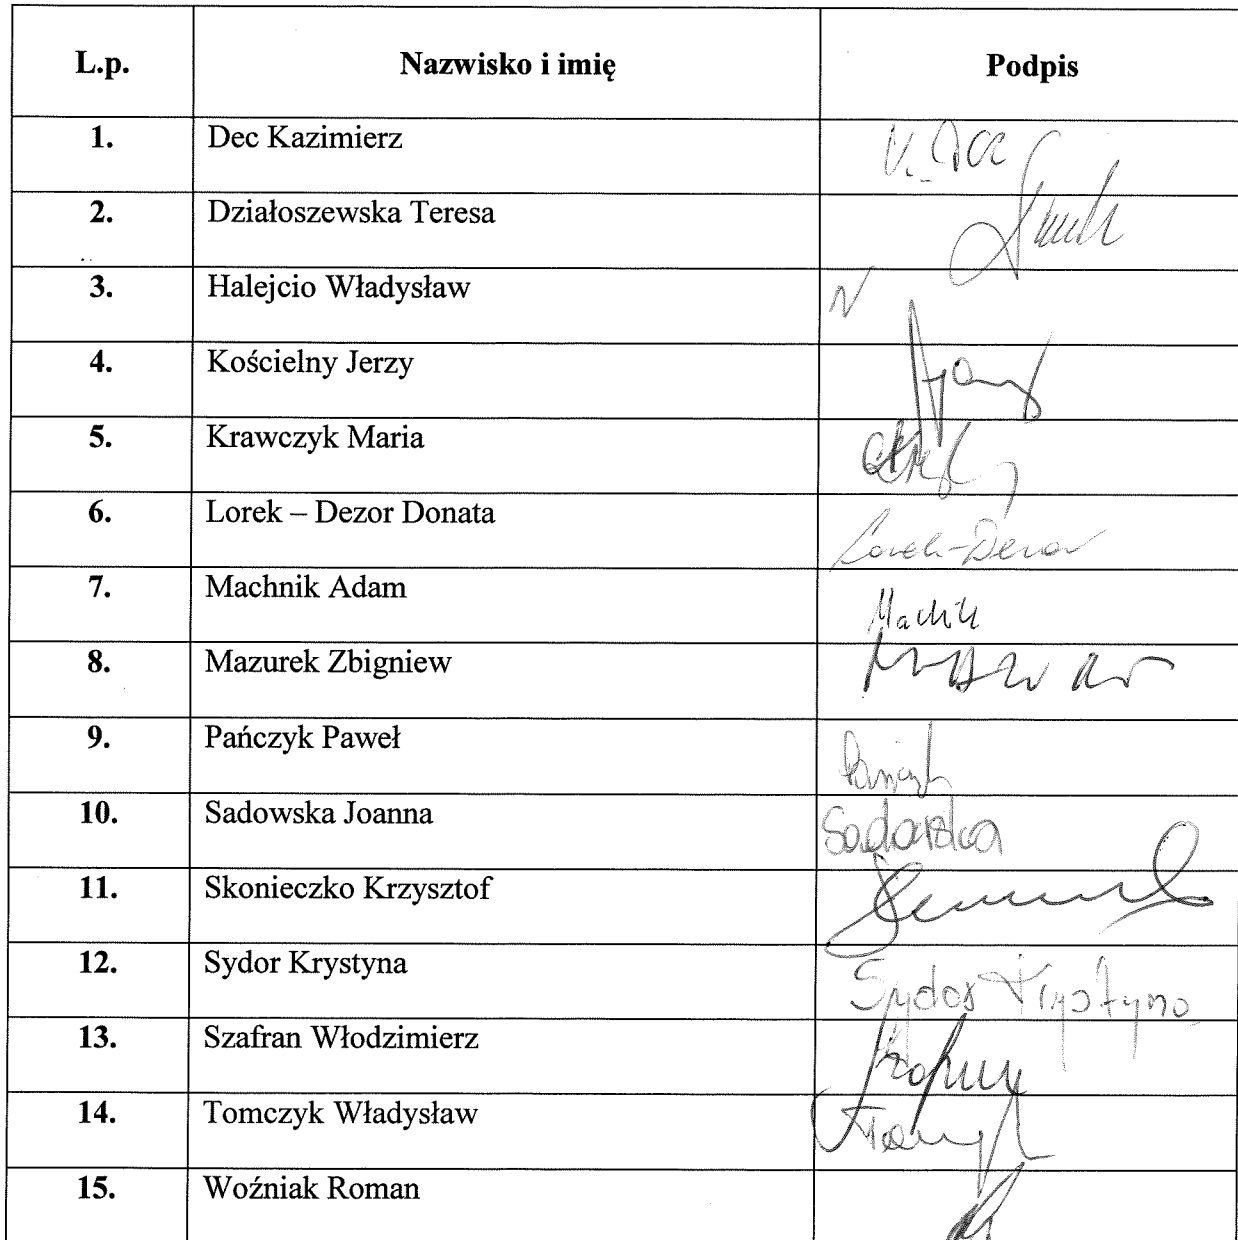 L.p. Nazwisko i imię Podpis
1. Dec Kazimierz K. Dec
2. Działoszewska Teresa
3. Halejcio Władysław N
4. Kościelny Jerzy
5. Krawczyk Maria
6. Lorek – Dezor Donata Lorek-Dezor
7. Machnik Adam Machnik
8. Mazurek Zbigniew
9. Pańczyk Paweł Pańczyk
10. Sadowska Joanna Sadowska
11. Skonieczko Krzysztof
12. Sydor Krystyna Sydor Krystyna
13. Szafran Włodzimierz
14. Tomczyk Władysław
15. Woźniak Roman